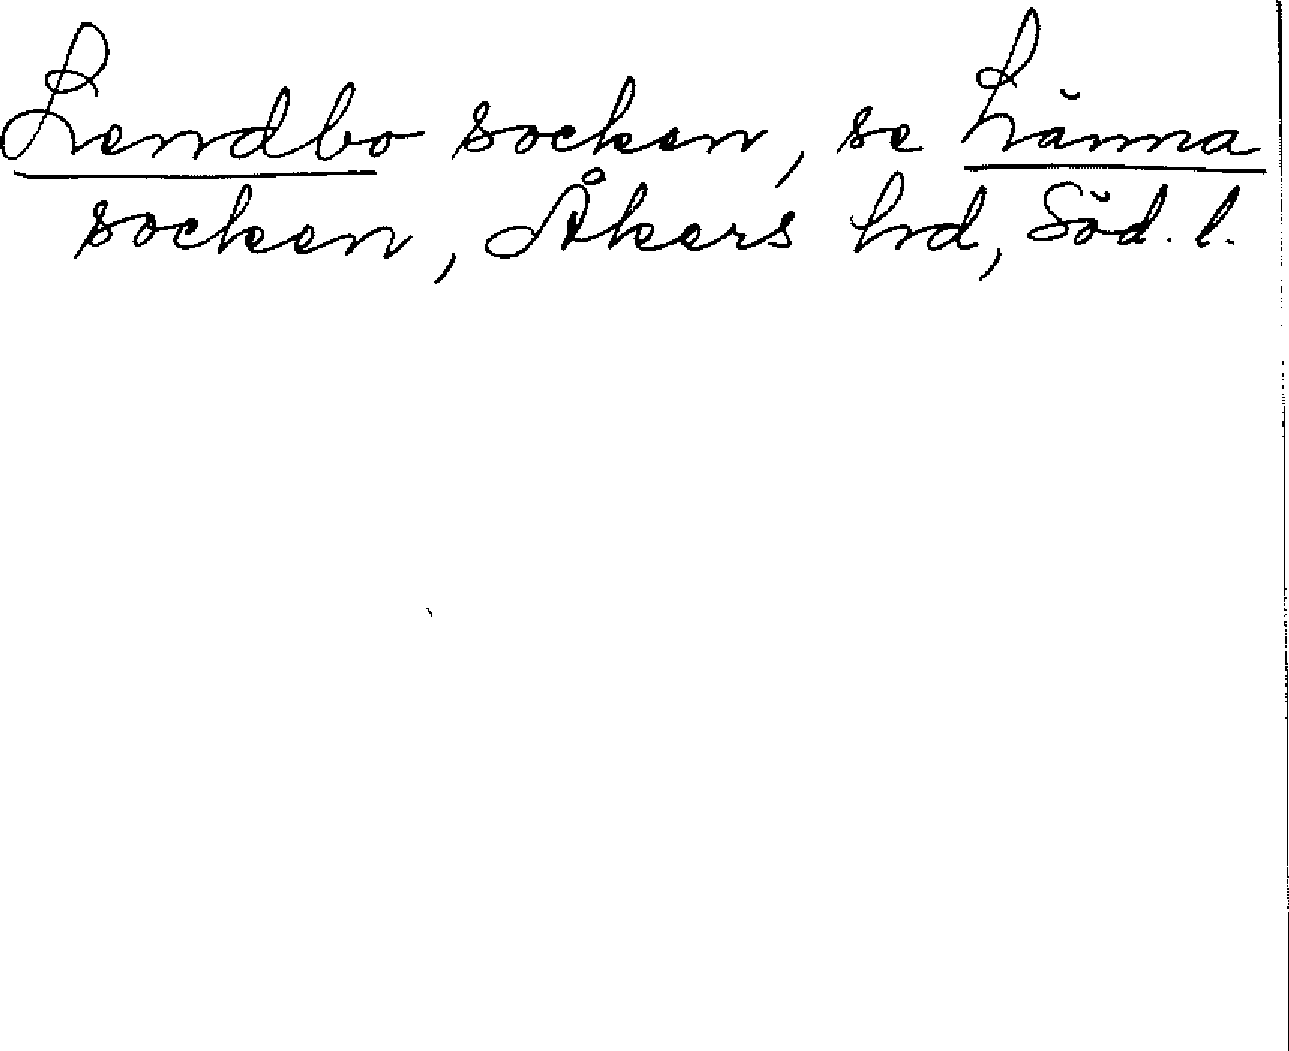 Lendbo socken, se Länna
socken, Åkers hd, Söd. l.